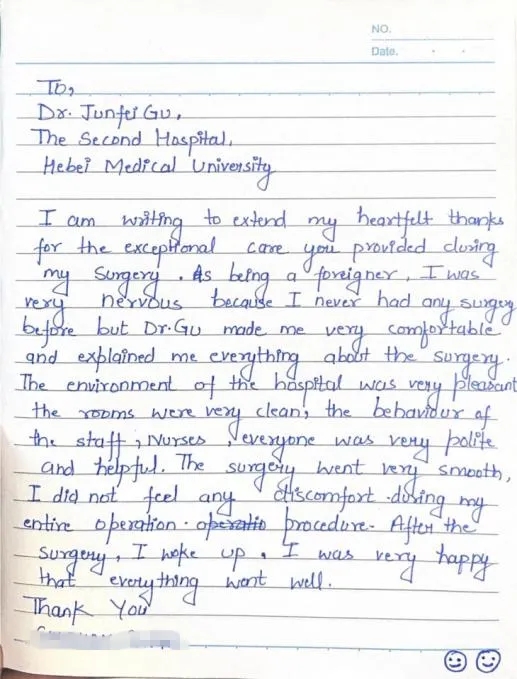 NO.
Date.
To,
Dr. Junfei Gu,
The Second Hospital,
Hebei Medical University
I am writing to extend my heartfelt thanks
for the exceptional care you provided during
my Surgery. As being a foreigner, I was
very nervous because I never had any surgery
before but Dr.Gu made me very comfortable
and explained me everything about the surgery.
The environment of the hospital was very pleasant
the rooms were very clean, the behaviour of
the staff, Nurses, everyone was very polite
and helpful. The surgery went very smooth,
I did not feel any discomfort during my
entire operation. operatio procedure. After the
surgery, I woke up. I was very happy
that everything went well.
Thank You